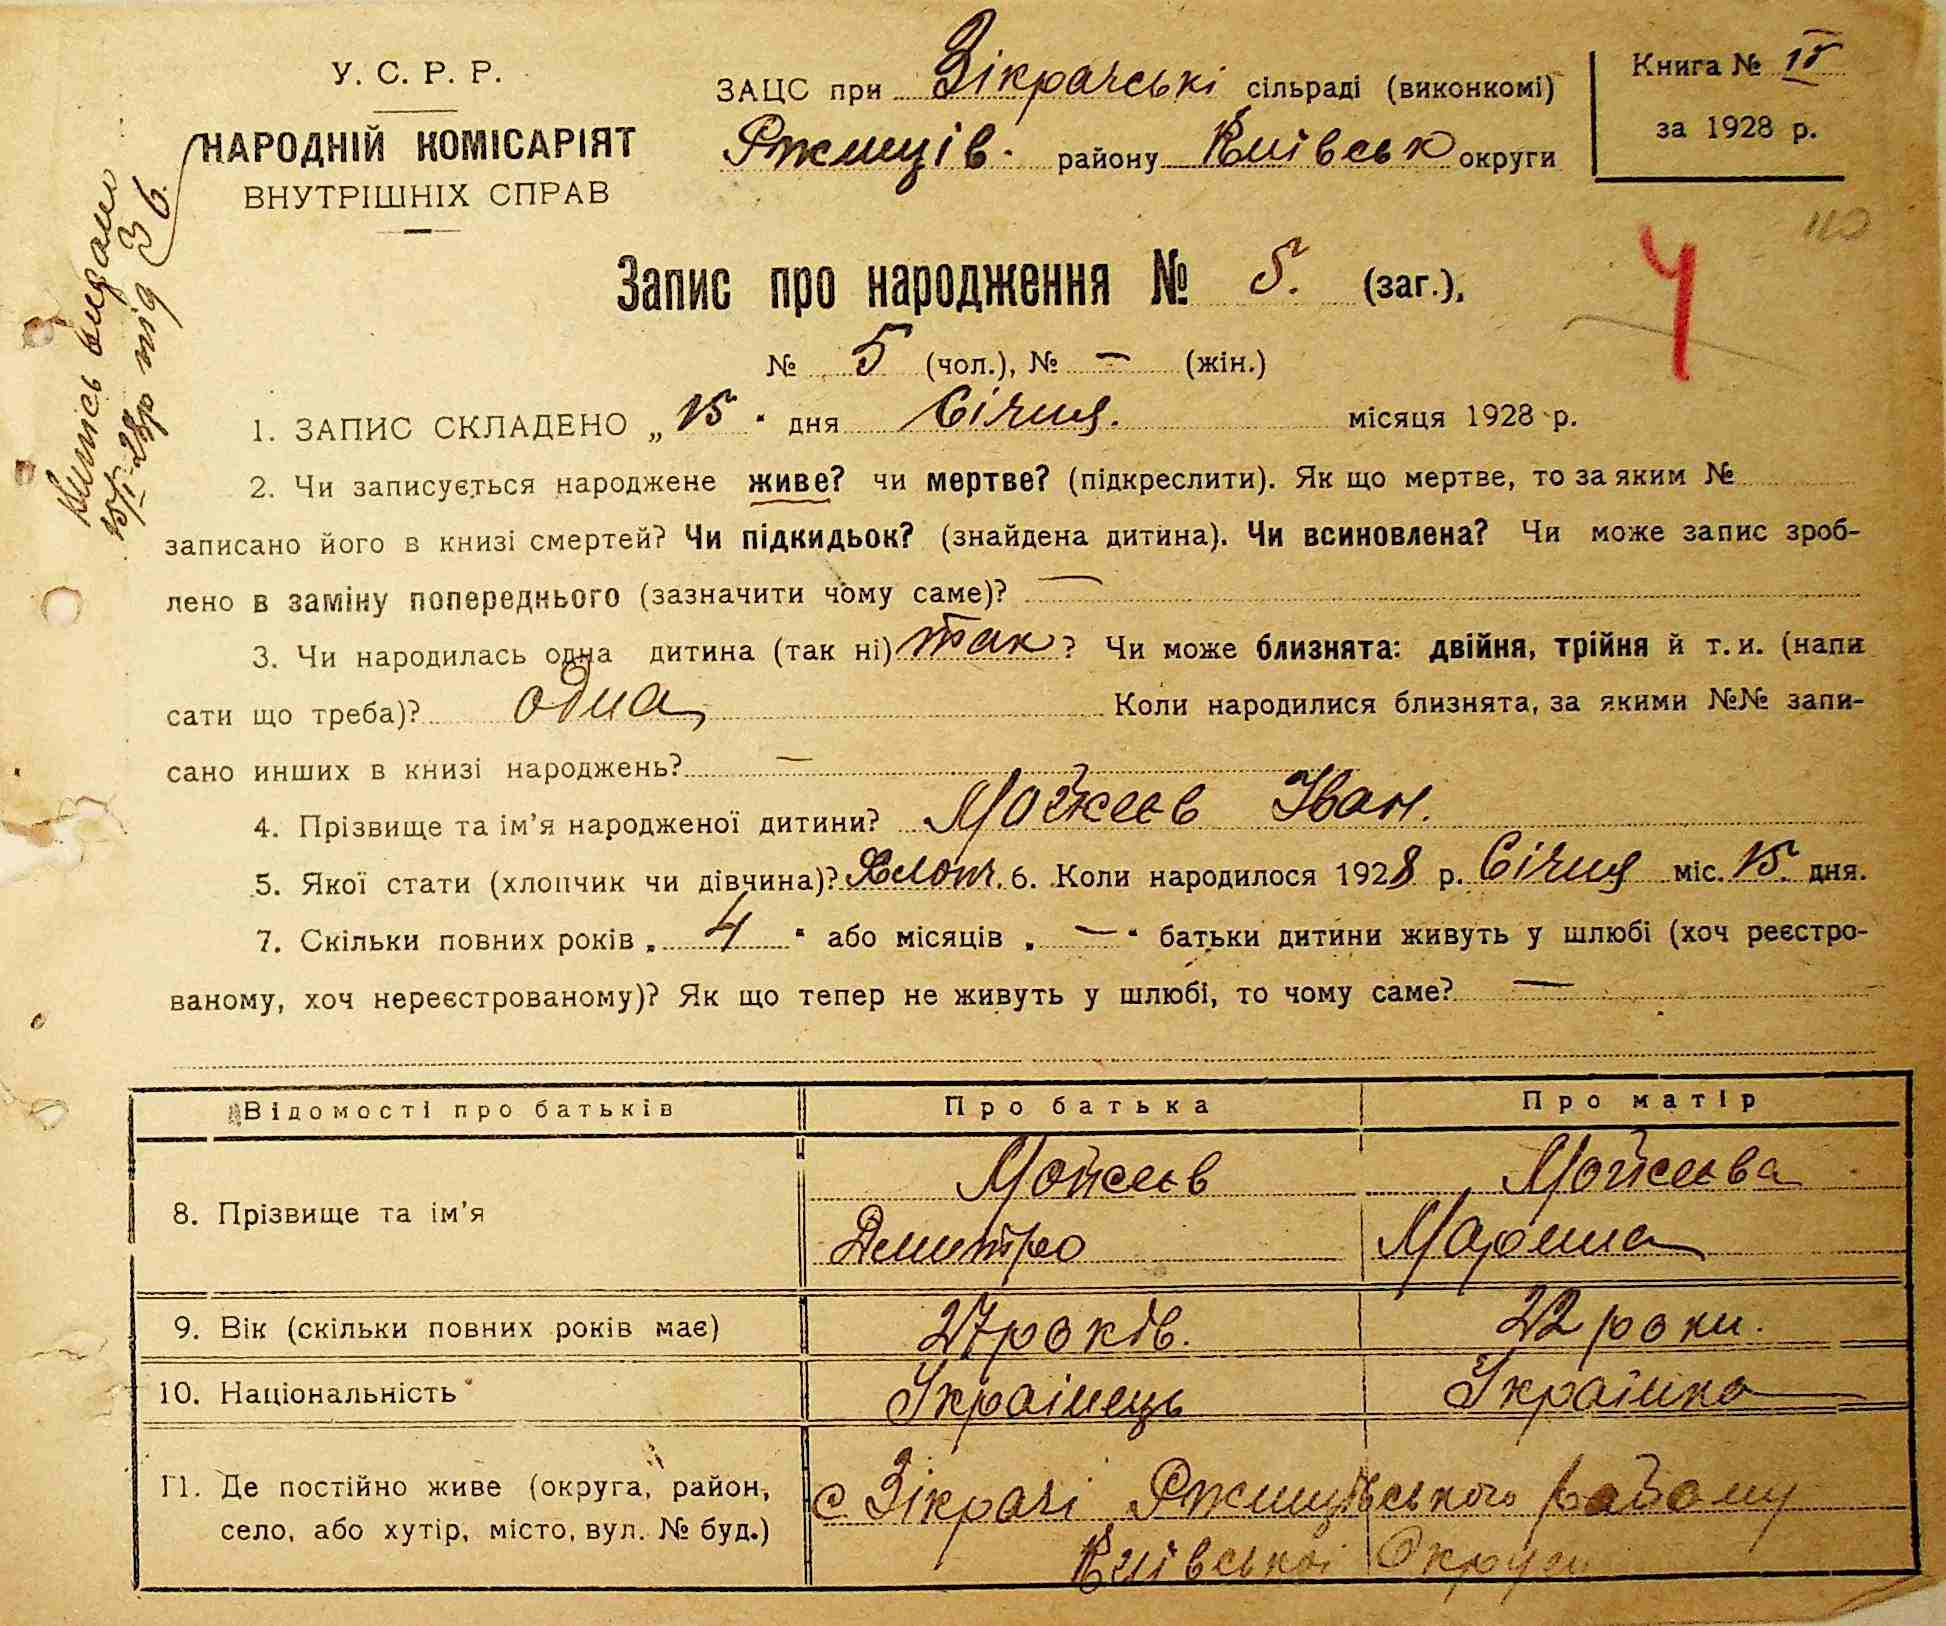 У. С. Р. Р.
НАРОДНІЙ КОМІСАРІЯТ
ВНУТРІШНІХ СПРАВ
ЗАЦС при Зікрачські сільраді (виконкомі)
Ржищів. району Київськ округи
Книга №
за 1928 р.
110
Випись видано
15/I-28р під
36.
Запис про народження № 5. (заг.),
4
№ 5 (чол.), № — (жін.)
1. ЗАПИС СКЛАДЕНО „15" дня Січня. місяця 1928 р.
2. Чи записується народжене живе? чи мертве? (підкреслити). Як що мертве, то за яким №
записано його в книзі смертей? Чи підкидьок? (знайдена дитина). Чи всиновлена? Чи може запис зроб-
лено в заміну попереднього (зазначити чому саме)? —
3. Чи народилась одна дитина (так ні) так? Чи може близнята: двійня, трійня й т. и. (напи
сати що треба)? одна Коли народилися близнята, за якими №№ запи-
сано инших в книзі народжень? —
4. Прізвище та ім'я народженої дитини? Мойсеєв Іван.
5. Якої стати (хлопчик чи дівчина)? Хлопч. 6. Коли народилося 1928 р. Січня міс. 15. дня.
7. Скільки повних років „4" або місяців „—" батьки дитини живуть у шлюбі (хоч реєстро-
ваному, хоч нереєстрованому)? Як що тепер не живуть у шлюбі, то чому саме? —
Відомості про батьків Про батька Про матір
8. Прізвище та ім'я
Мойсеєв
Дмитро
Мойсеєва
Марина
9. Вік (скільки повних років має) 27 років. 22 роки.
10. Національність Українець Українка
11. Де постійно живе (округа, район,
село, або хутір, місто, вул. № буд.)
с Зікрачі Ржищівського району
Київської Округи